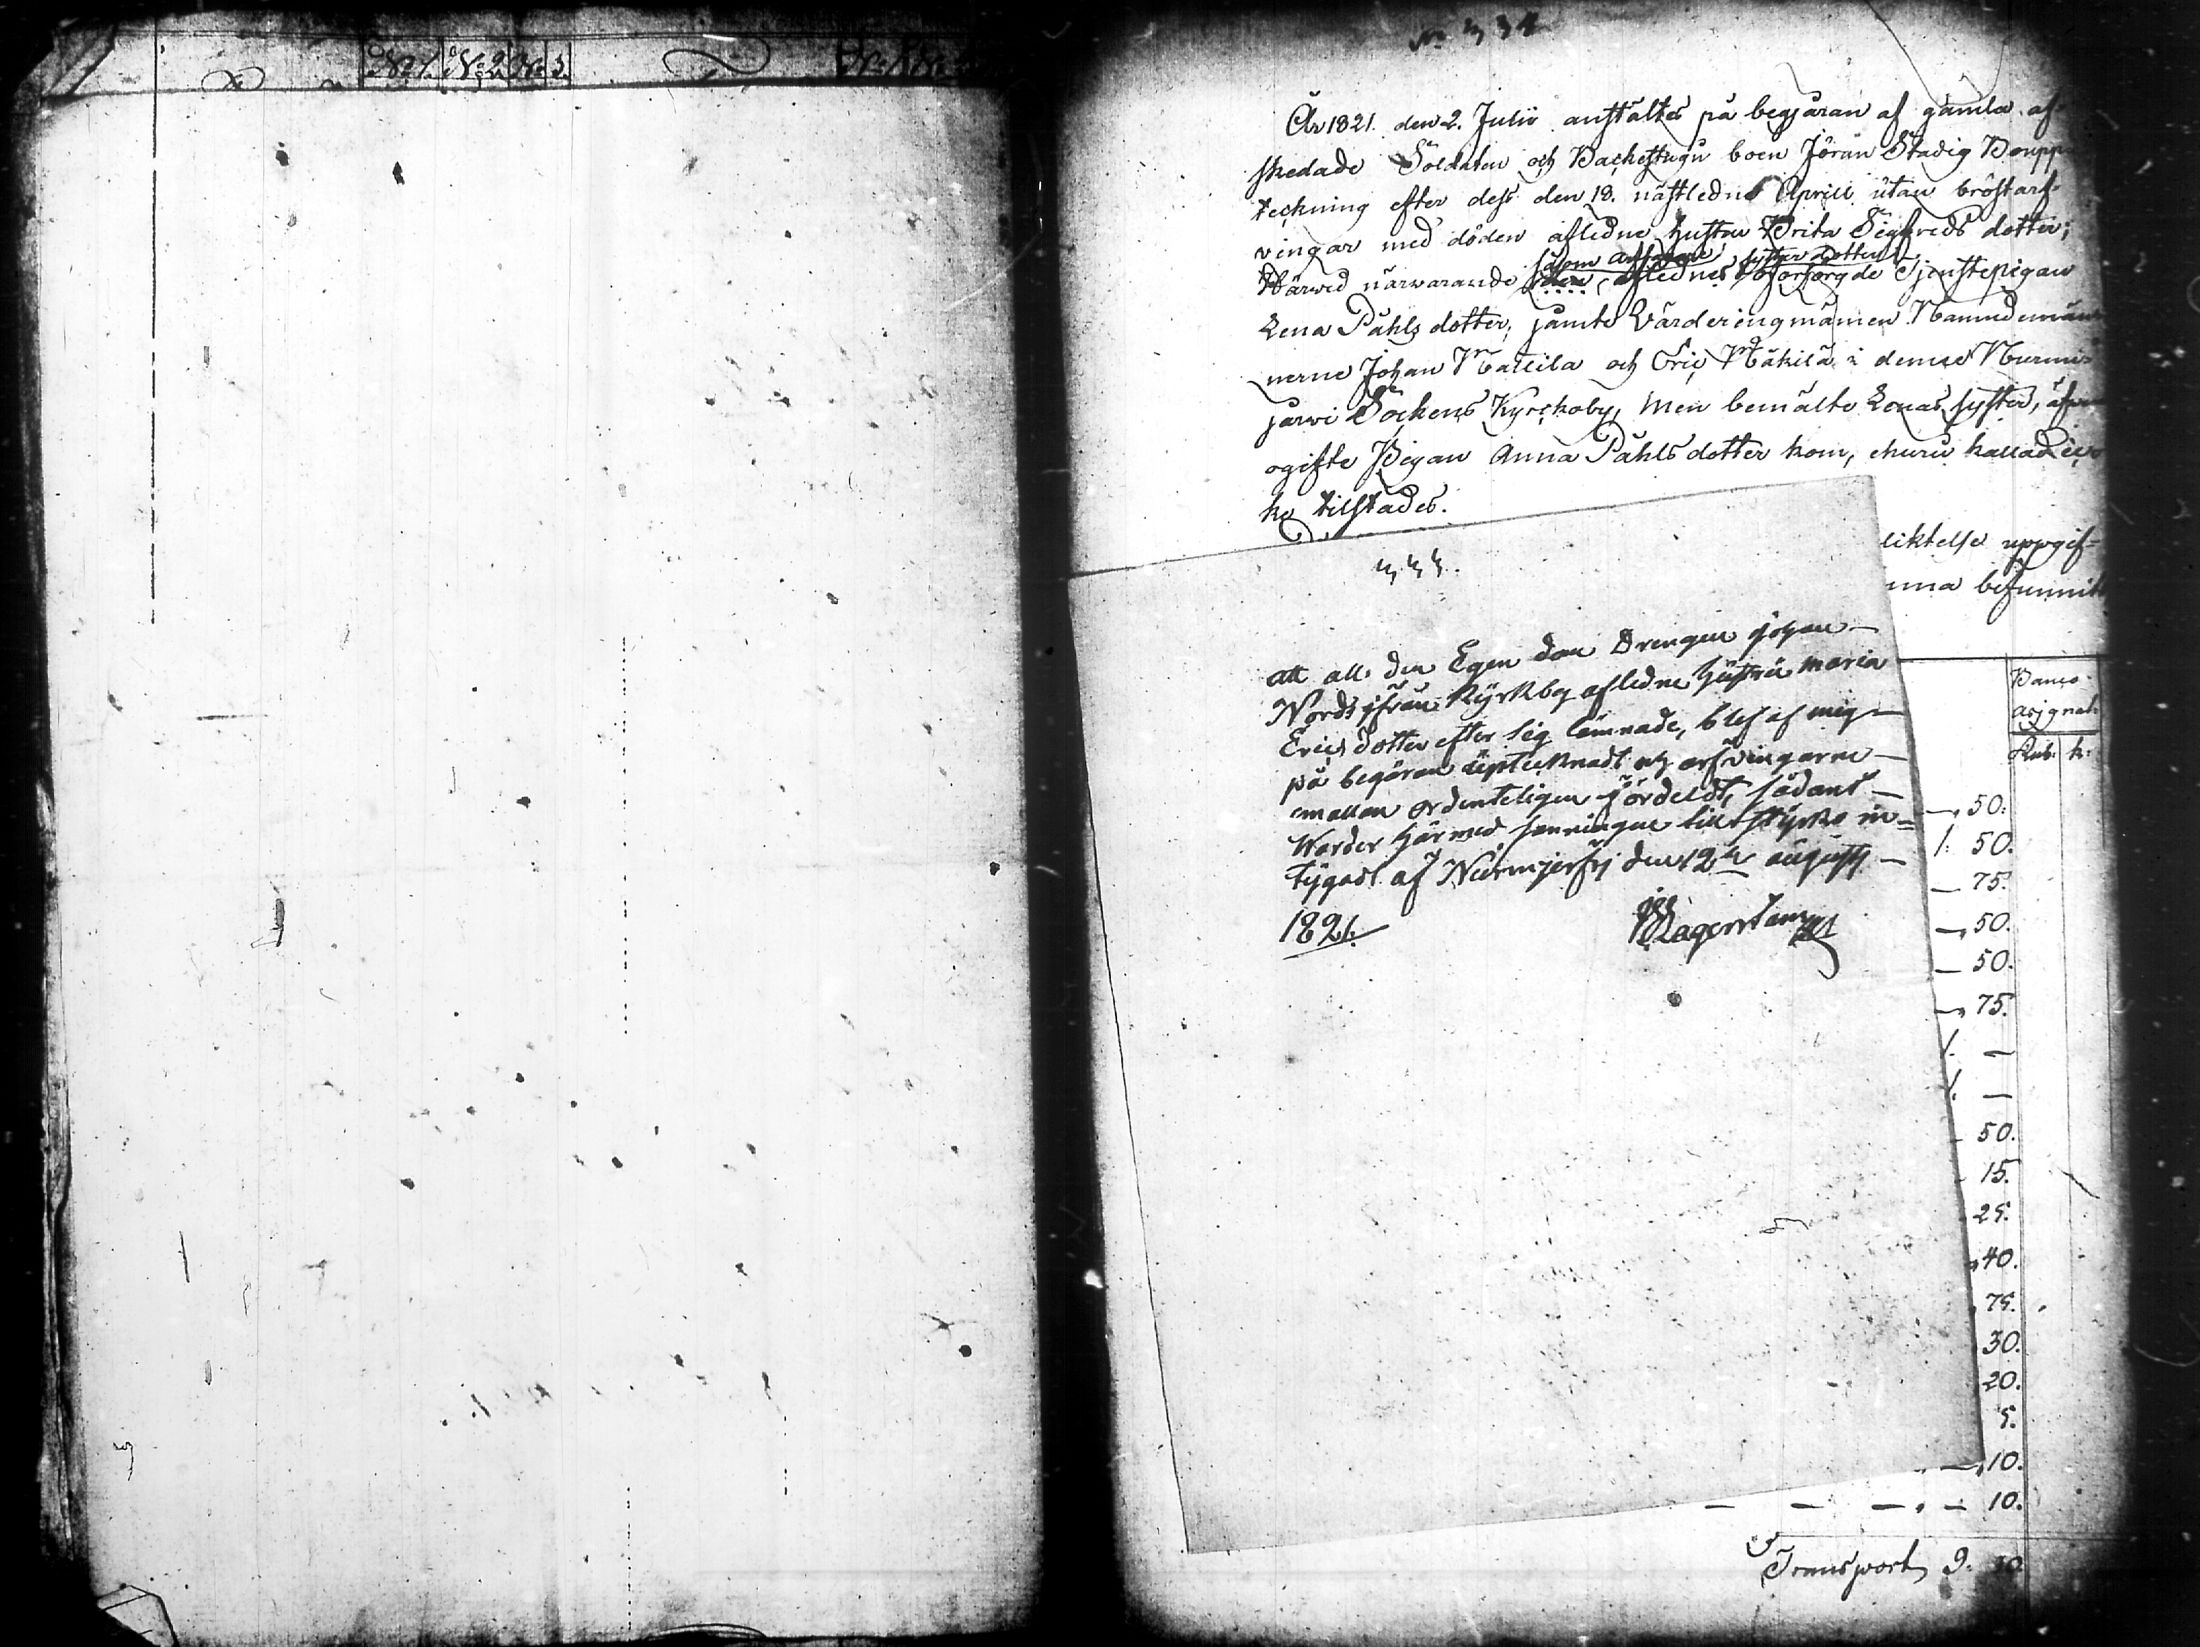 No 1. No 2. No 3.
No 334
År 1821. den 2. Julii anstältes på begjäran af gamla af-
skedade Soldaten och Backstugu boen Jöran Stadig Boupp-
teckning efter dess den 18. nästledne Aprill utan bröstarf-
vingar med döden afledne Hustru Brita Sigfreds dotter;
såsom arfvinge syster dotter
Härvid närvarande den aflednes oförsörgde Tjenstepigan
Lena Påhls dotter, jämte Värderingmännen Nämndemän-
nerne Johan Mattila och Eric Mäkilä i denne Nurmi-
järvi Sockens Kyrckoby, men bemälte Lenas syster, äfven
ogifte Pigan Anna Påhls dotter kom, ehuru kallad ic-
ke tilstädes.
liktelse uppgif-
nna befunnit
333.
att all den Egendom Drengen Johan
Nords ifrån Kyrkby afledne hustru Maria
Erics dotter efter sig lämnade, blef af mig
på begäran uptecknadt och arfvingarne
emellan ordenteligen fördeldt, sådant
Warder härmed sanningen till styrko in-
tygadt af Nurmijerfvj den 12te augusti
1821.
Lagerstam
Banco
assignat:
Rub: k:
— 50:
1: 50.
— 75.
— 50.
— 50.
— 75.
1. —
1. —
50.
15.
25.
40.
75.
30.
20.
5.
10.
— — — — 10.
Transport 9. 10